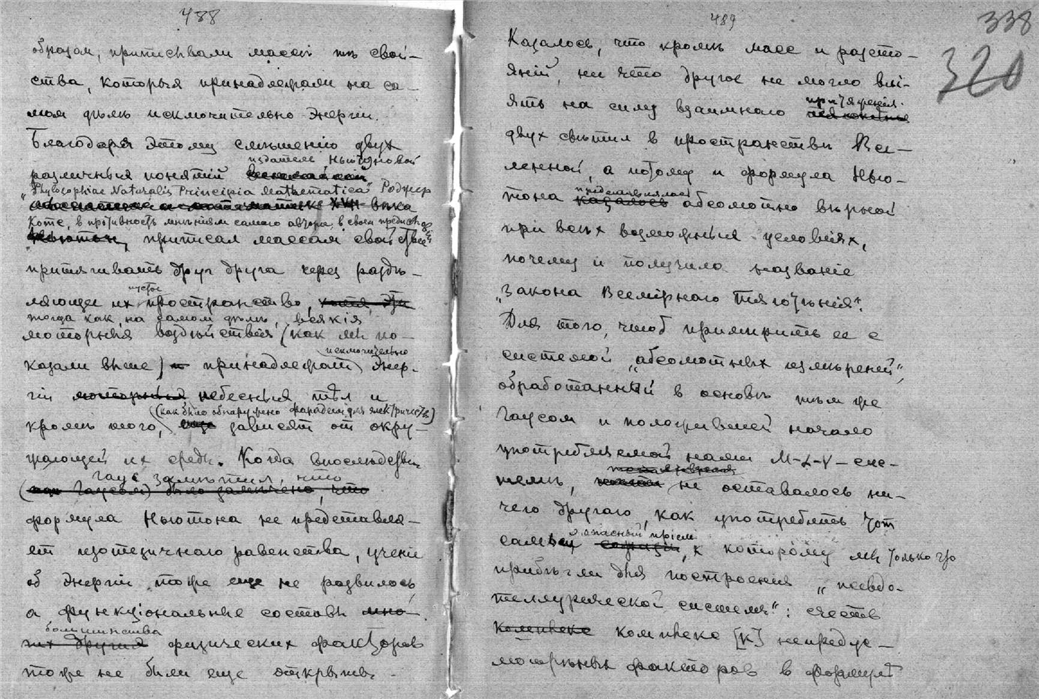 488
образом, приписывали массѣ тѣ свой-
ства, которыя принадлежали на са-
мом дѣлѣ исключительно энергіи.
Благодаря этому смѣшенію двух
издатель Ньютоновой
различныя понятій
„Philosophiae Naturalis Principia Mathematica" Роджер
вѣка
Котс, в противность мнѣніям самаго автора, в своем предисловіи
приписал массам свойство
притягивать друг друга через раздѣ-
пустое
ляющее их пространство,
тогда как на самом дѣлѣ, всякія
моторныя воздѣйствія (как мы по-
исключительно
казали выше) принадлежат энер-
гіи небесных тѣл и
(как было обнаружено Фарадеем для электричества)
кромѣ того, еще зависят от окру-
жающей их среды. Когда впослѣдствіи
Гаус замѣтил, что
(Гаусом) было замѣчено, что
формула Ньютона не представля-
ет изотезичнаго равенства, ученіе
об энергіи тоже еще не развилось
а функціональные составы мно-
большинства
гих других физических факторов
тоже не были еще открыты.
489
338
320
Казалось, что кромѣ масс и разсто-
яній, ни что другое не могло влі-
ять на силу взаимнаго
притяженія
двух свѣтил в пространствѣ Все-
ленной, а потому и формула Нью-
представлялась
тона казалось абсолютно вѣрной
при всѣх возможных условіях,
почему и получила названіе
„Закона Всемірнаго Тяготѣнія".
Для того, чтоб примирить ее с
системой „абсолютных измѣреній",
обработанный в основѣ тѣм же
Гаусом и положившей начало
употребляемой нами M-L-V-сис-
темѣ, не оставалось ни-
чего другаго, как употребить тот
опасный пріем
самый к которому мы только что
прибѣгли для построенія „псевдо-
теллурической системы": счесть
комплекс комплекс [K] непреду-
смотрѣнных факторов в формулѣ